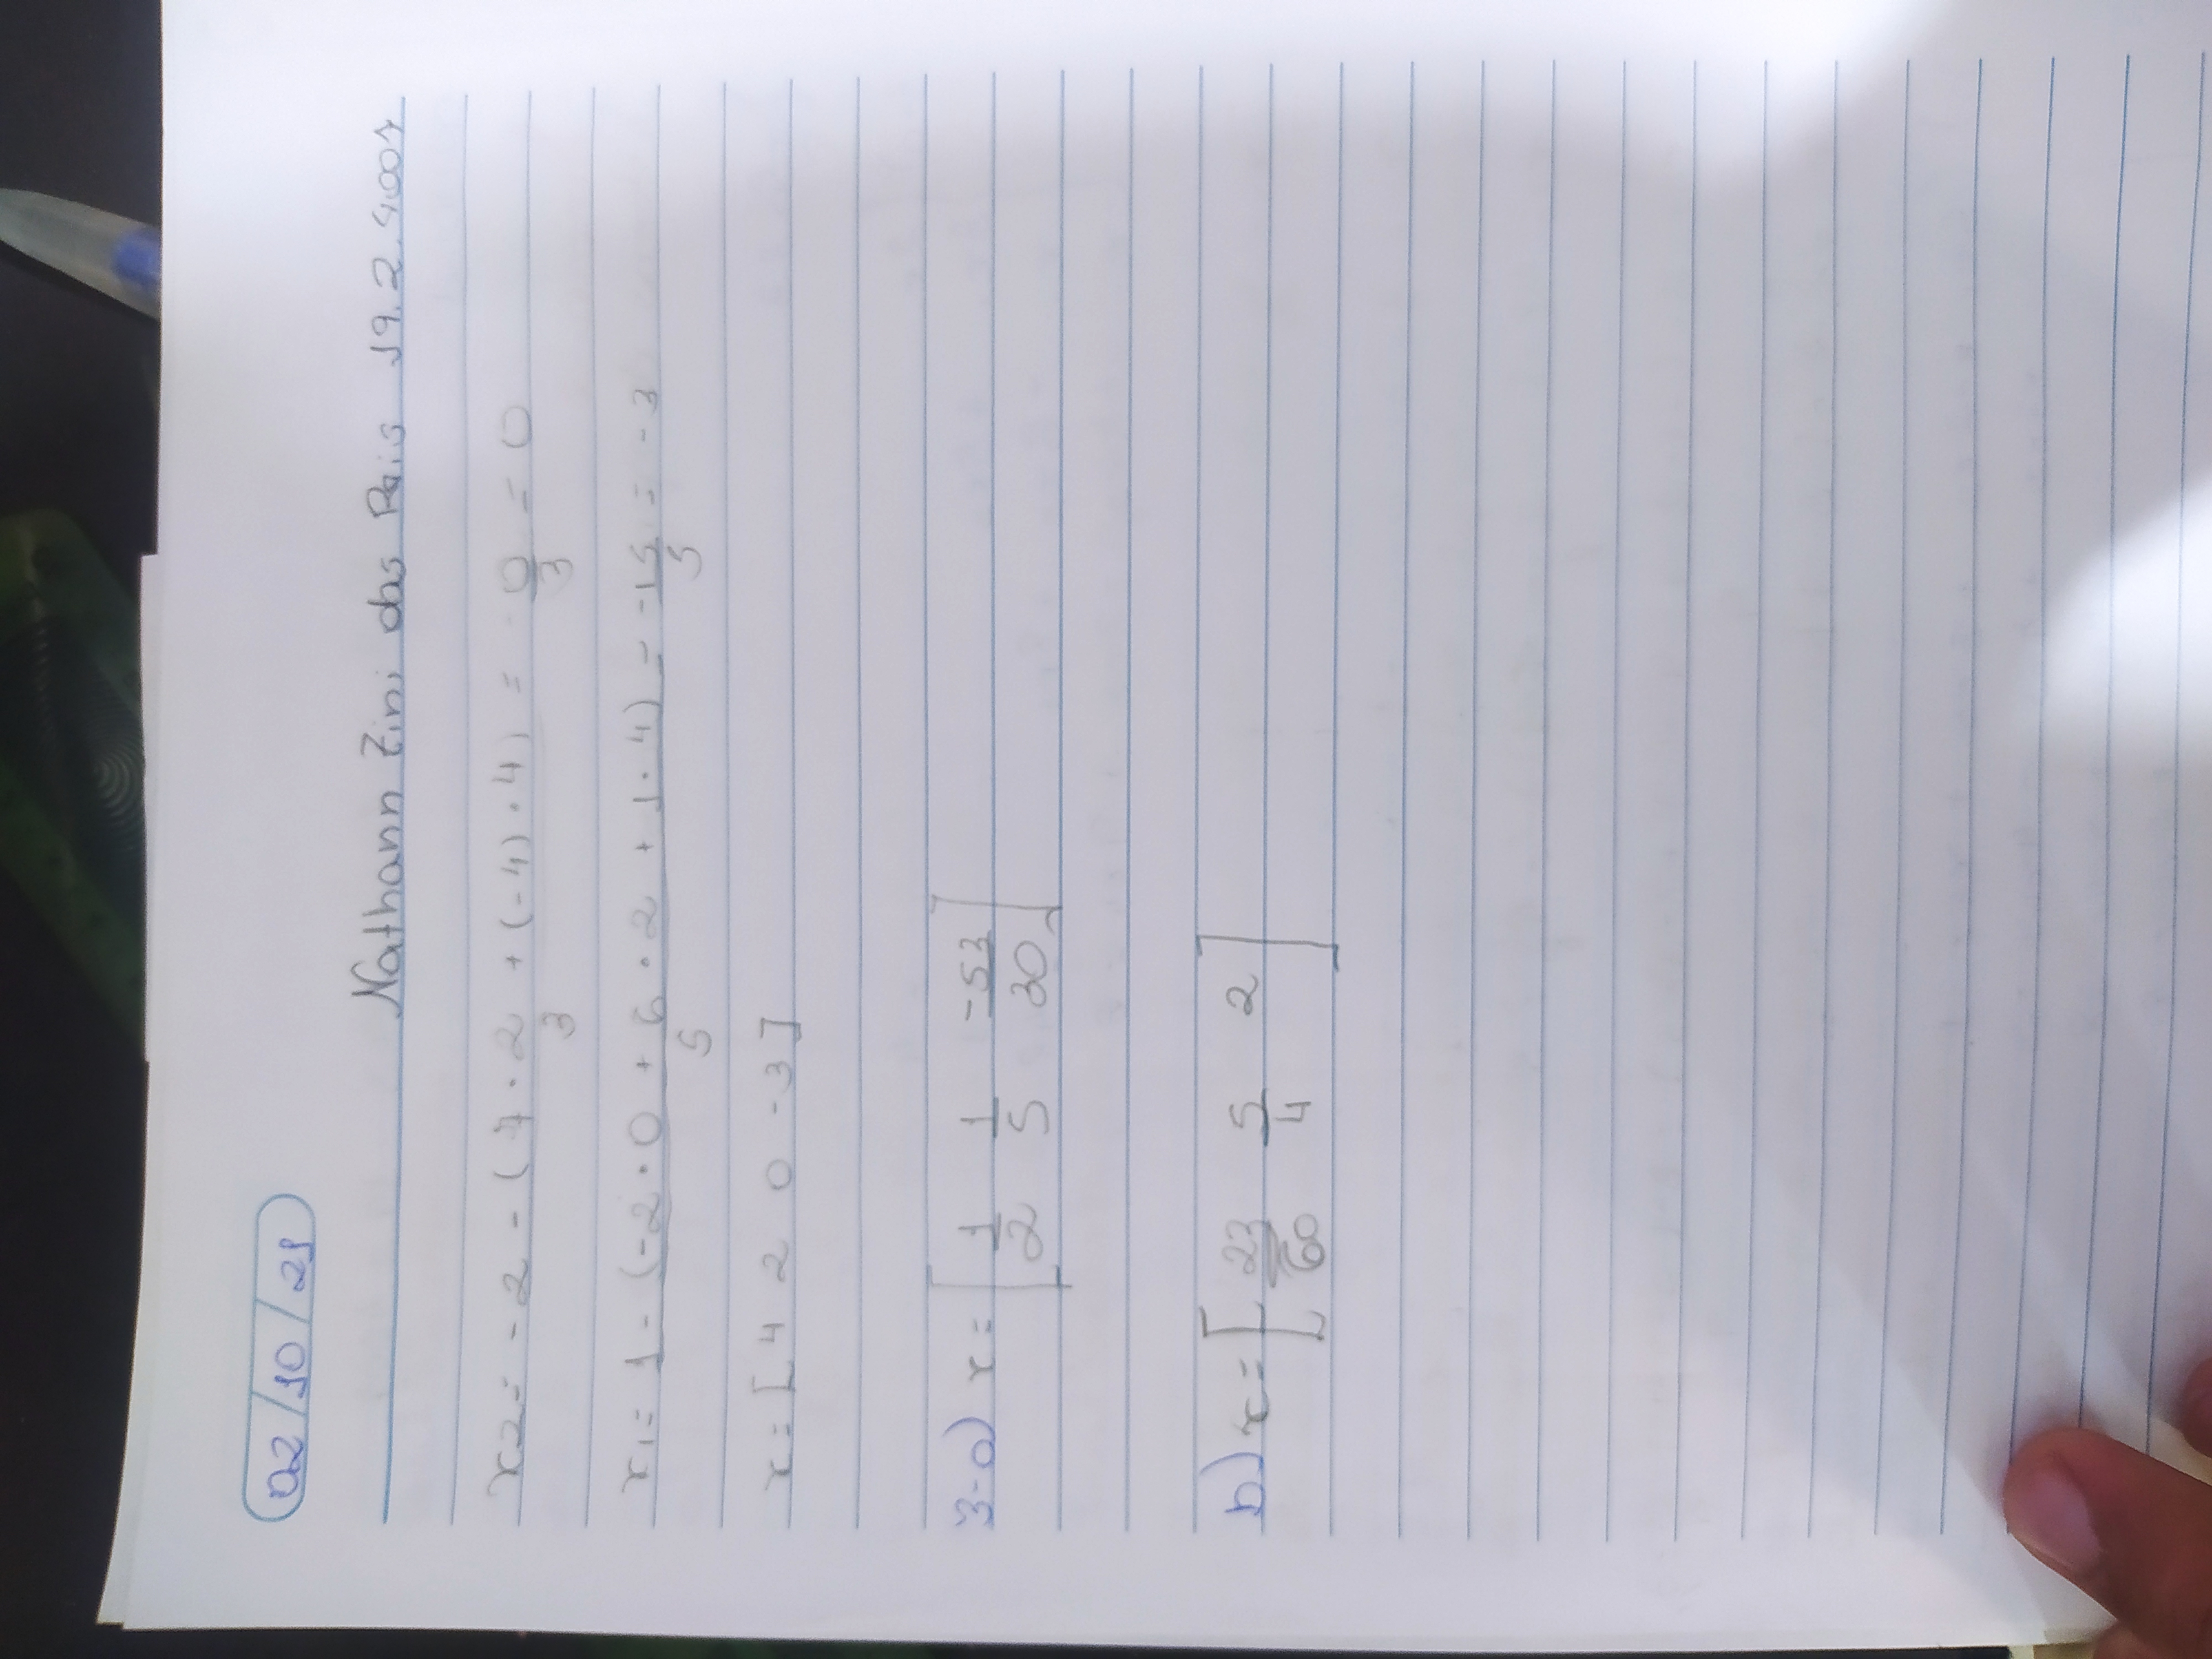 02/10/21
Nathann Zini dos Reis 19.2.4007
x2 = -2 - (7 · 2 + (-4) · 4) = 0 = 0
3 3
x1 = 1 - (-2 · 0 + 6 · 2 + 1 · 4) = -15 = -3
5 5
x = [ 4 2 0 -3 ]
3-a) x = [ 1 1 -53 ]
2 5 30
b) x = [ 23 5 2 ]
60 4